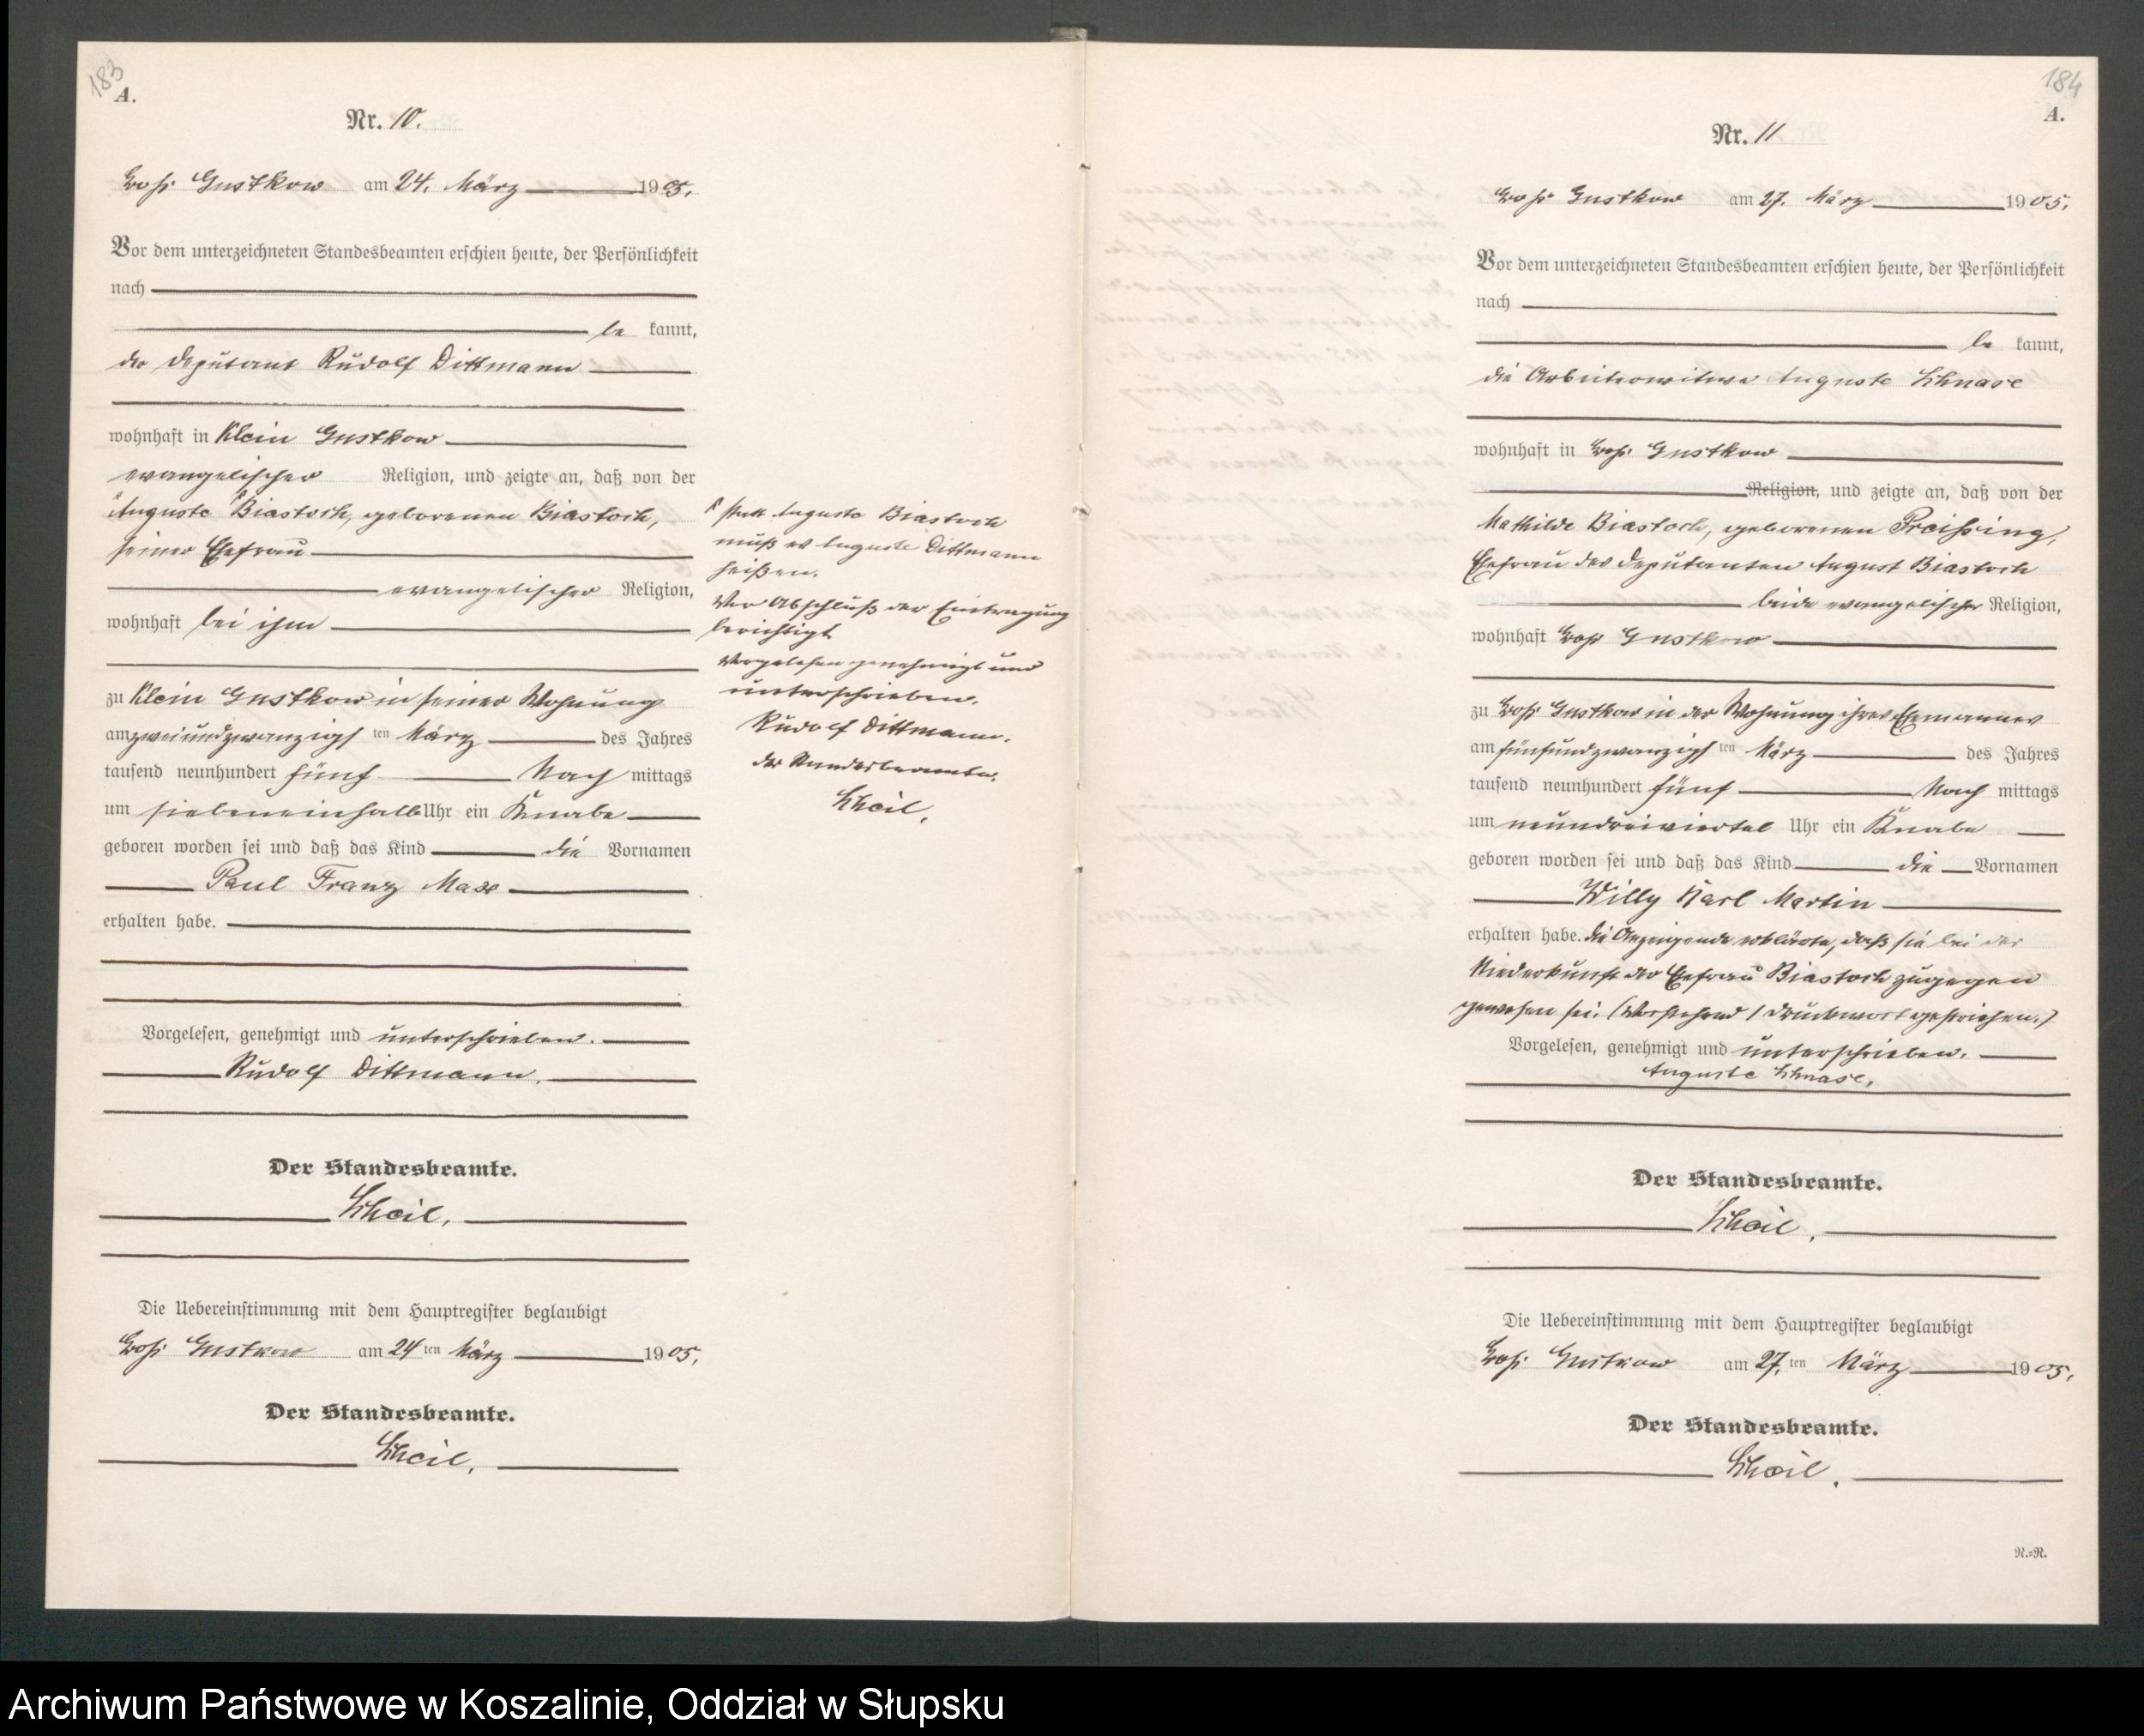 183
A.
Nr. 10.
Groß Gustkow am 24. März 1905.
Vor dem unterzeichneten Standesbeamten erschien heute, der Persönlichkeit
nach
be kannt,
der Deputant Rudolf Dittmann
wohnhaft in Klein Gustkow
evangelischer Religion, und zeigte an, daß von der
Auguste Biastoch, geborenen Biastoch,
seiner Ehefrau
evangelischer Religion,
wohnhaft bei ihm
zu Klein Gustkow in seiner Wohnung
am zweiundzwanzigsten März des Jahres
tausend neunhundert fünf Nach mittags
um siebeneinhalb Uhr ein Knabe
geboren worden sei und daß das Kind die Vornamen
Paul Franz Max
erhalten habe.
Vorgelesen, genehmigt und unterschrieben.
Rudolf Dittmann.
Der Standesbeamte.
Scheil.
Die Uebereinstimmung mit dem Hauptregister beglaubigt
Groß Gustkow am 24ten März 1905.
Der Standesbeamte.
Scheil.
statt Auguste Biastoch
muß es Auguste Dittmann
heißen.
Vor Abschluß der Eintragung
berichtigt
Vorgelesen genehmigt und
unterschrieben.
Rudolf Dittmann.
der Standesbeamte.
Scheil.
184
A.
Nr. 11
Groß Gustkow am 27. März 1905.
Vor dem unterzeichneten Standesbeamten erschien heute, der Persönlichkeit
nach
be kannt,
die Arbeiterwitwe Auguste Schnase
wohnhaft in Groß Gustkow
Religion, und zeigte an, daß von der
Mathilde Biastoch, geborenen Preißing,
Ehefrau des Deputanten August Biastoch
beide evangelischer Religion,
wohnhaft Groß Gustkow
zu Groß Gustkow in der Wohnung ihres Ehemannes
am fünfundzwanzigsten März des Jahres
tausend neunhundert fünf Nach mittags
um neundreiviertel Uhr ein Knabe
geboren worden sei und daß das Kind die Vornamen
Willy Karl Martin
erhalten habe. die Anzeigende erklärte, daß sie bei der
Niederkunft der Ehefrau Biastoch zugegen
gewesen sei. (Vorstehend 1 Druckwort gestrichen.)
Vorgelesen, genehmigt und unterschrieben.
Auguste Schnase.
Der Standesbeamte.
Scheil.
Die Uebereinstimmung mit dem Hauptregister beglaubigt
Groß Gustkow am 27.ten März 1905.
Der Standesbeamte.
Scheil.
N.=R.
Archiwum Państwowe w Koszalinie, Oddział w Słupsku